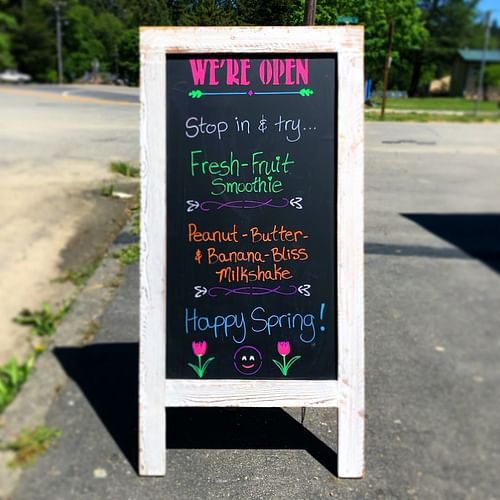 WE'RE OPEN
Stop in & try...
Fresh-Fruit
Smoothie
Peanut-Butter-
& Banana-Bliss
Milkshake
Happy Spring!